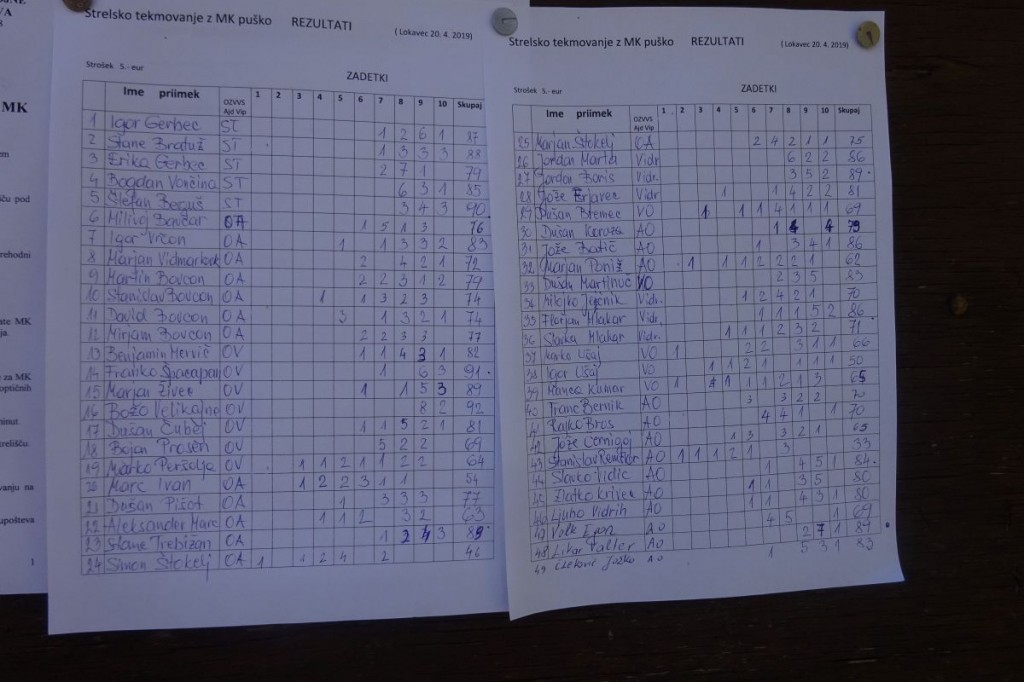 MK
šču pod
rehodni
ate MK
ja.
e za MK
optičnih
minut.
trelišču.
vanju na
upošteva
1
Strelsko tekmovanje z MK puško REZULTATI
( Lokavec 20. 4. 2019)
Strošek 5.- eur
ZADETKI
Ime priimek OZVVS Ajd Vip 1 2 3 4 5 6 7 8 9 10 Skupaj
1 Igor Gerbec ST 1 2 6 1 87
2 Stane Bratuž ST 1 3 3 3 88
3 Erika Gerbec ST 2 7 1 79
4 Bogdan Vončina ST 6 3 1 85
5 Štefan Beguš ST 3 4 3 90
6 Milivoj Bavčar OA 1 5 1 3 76
7 Igor Vrčon OA 1 1 3 3 2 83
8 Marjan Vidmar OA 2 4 2 1 72
9 Martin Bovcon OA 2 2 3 1 2 79
10 Stanislav Bovcon OA 1 1 3 2 3 74
11 David Bovcon OA 3 1 3 2 1 74
12 Mirjam Bovcon OA 2 2 3 3 77
13 Benjamin Hervič OV 1 1 4 3 1 82
14 Franko Špacapan OV 1 6 3 91
15 Marjan Živec OV 1 1 5 3 89
16 Božo Velikajne OV 8 2 92
17 Dušan Čubej OV 1 1 5 2 1 81
18 Bojan Prosen OV 5 2 2 69
19 Marko Peršolja OV 1 1 2 1 1 2 2 64
20 Marc Ivan OA 1 2 2 3 1 1 54
21 Dušan Pišot OA 1 3 3 3 77
22 Aleksander Marc OA 1 1 2 3 2 63
23 Stane Trebižan OA 1 2 4 3 89
24 Simon Štokelj OA 1 1 2 4 2 46
Strelsko tekmovanje z MK puško REZULTATI
( Lokavec 20. 4. 2019)
Strošek 5.- eur
ZADETKI
Ime priimek OZVVS Ajd Vip 1 2 3 4 5 6 7 8 9 10 Skupaj
25 Marjan Štokelj OA 2 4 2 1 1 75
26 Jordan Marta Vidr. 6 2 2 86
27 Jordan Boris Vidr. 3 5 2 89
28 Jože Brlavec Vidr. 1 1 4 2 2 81
29 Dušan Bremec VO 1 1 1 4 1 1 1 69
30 Dušan AO 1 4 4
31 Jože Batič AO 1 3 4 1 86
32 Marjan Poniž AO 1 1 1 2 2 2 1 62
33 Dušan Martinuc VO 2 3 5 83
34 Milojko Vidr. 1 2 4 2 1 70
35 Florjan Mlakar Vidr. 1 1 1 5 2 86
36 Slavka Mlakar Vidr. 1 1 1 2 3 2 71
37 Marko Ušaj VO 1 2 2 3 1 1 66
38 Igor Ušaj VO 1 1 2 1 1 1 1 50
39 Kumar VO 1 1 1 2 1 3 65
40 Franc Bernik AO 3 3 2 2 70
41 Rajko Brus AO 4 4 1 1 70
42 Jože Černigoj AO 1 3 3 2 1 65
43 Stanislav AO 1 1 1 2 1 3 33
44 Slavko Vidic AO 1 4 5 1 84
45 Zlatko Krivec AO 1 1 3 5 80
46 Ljubo Vidrih AO 1 1 4 3 1 80
47 Volk AO 4 5 1 69
48 Likar AO 2 7 1 89
49 AO 1 5 3 1 83